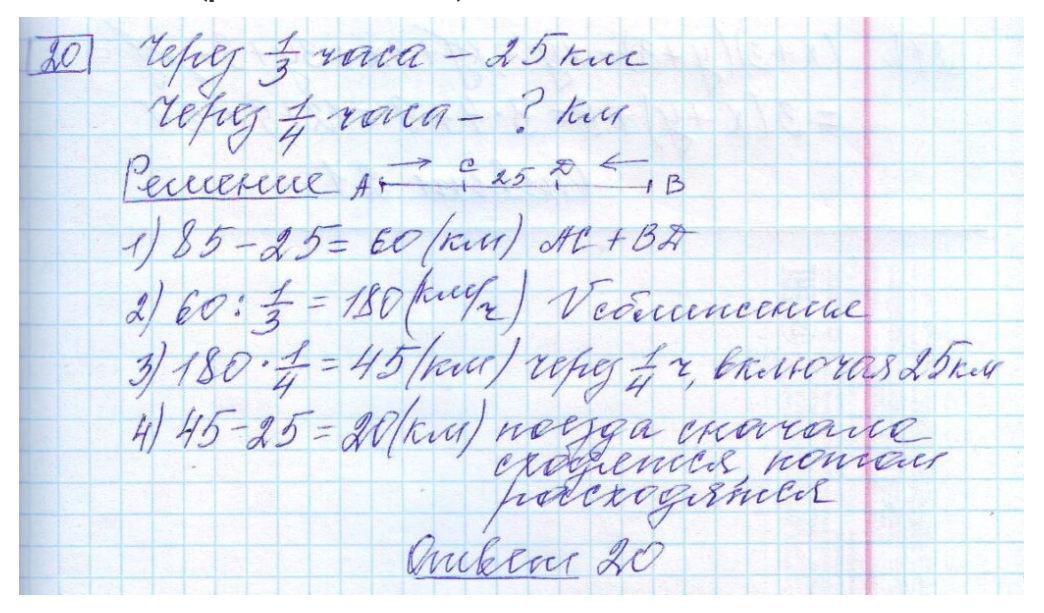 20 Через 1/3 часа – 25 км
Через 1/4 часа – ? км
Решение A C 25 D B
1) 85 – 25 = 60 (км) AC + BD
2) 60 : 1/3 = 180 (км/ч) V сближения
3) 180 · 1/4 = 45 (км) через 1/4 ч, включая 25 км
4) 45 – 25 = 20 (км) поезда сначала
сходятся, потом
расходятся
Ответ 20